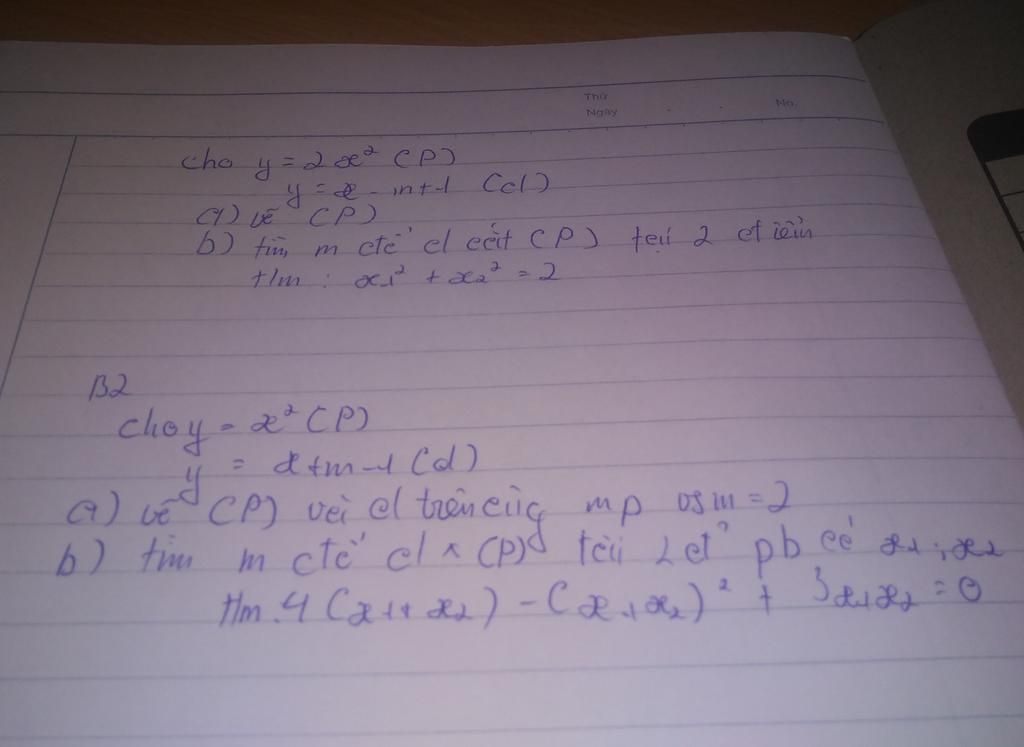 Thứ
Ngày No.
Cho y = 2x² (P)
y = x - m+1 (d)
a) vẽ (P)
b) tìm m để d cắt (P) tại 2 điểm
t/m : x₁² + x₂² = 2
B2
Cho y = x² (P)
y = x+m-1 (d)
a) vẽ (P) và d trên cùng mp vs m = 2
b) tìm m để d ^ (P) tại 2 đ' pb có x₁ ; x₂
t/m. 4 (x₁ + x₂) - (x₁x₂)² + 3x₁x₂ = 0